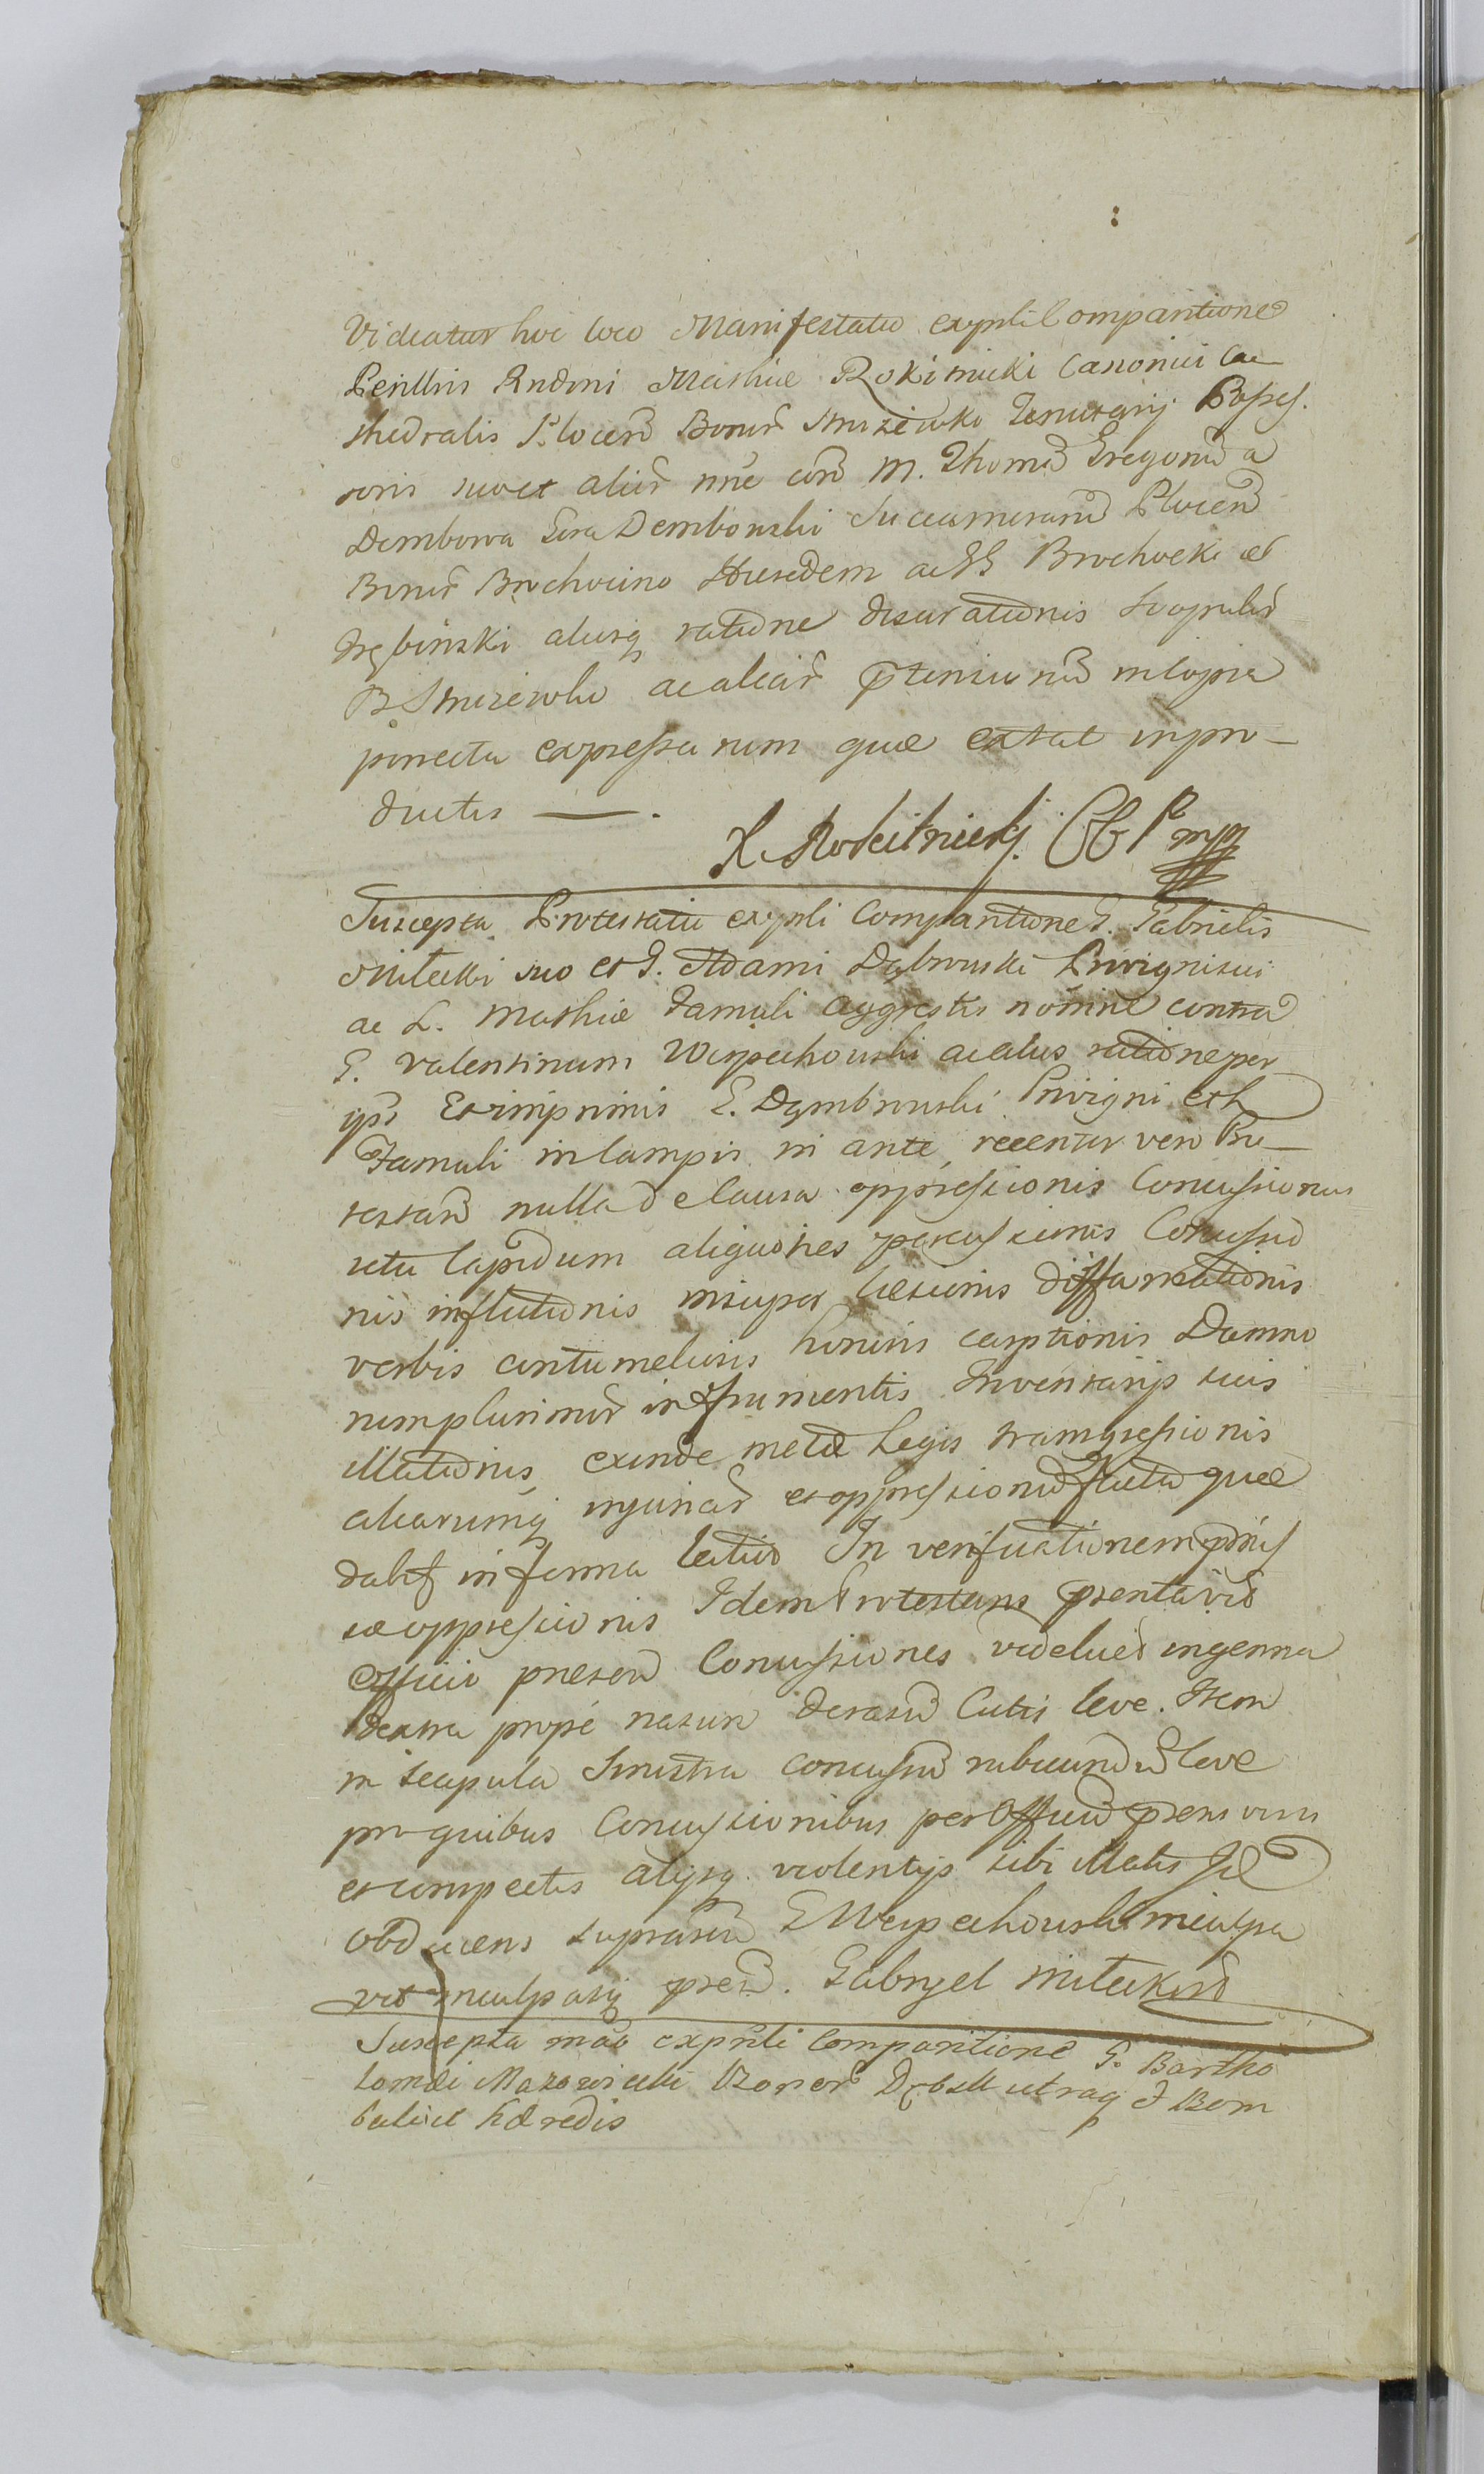 Videatur hoc loco Manifestatio exprsti Comparitione
Perillris Rndmi Mathiae Rokitnicki Canonici Ca
thedralis Plocen Bonor Smiżewko Tenutarij Posses.
soris suo et alior nne con M. Thomam Gregorium a
Dembowa Gora Dembowski Succamerarium Plocen
Bonor Brochocino Haeredem ac GG Brochocki et
Trębinski aliosq ratione
ac aliar ptensionum in copia
porrecta expressarum quae extat in pro-
ductis —.
X Rokitnickj mpp
Suscepta Protestatio exprsti Comparitione G. Gabrielis
Milecki suo et G. Adami Dąbrowski Privigni sui
ac L. Mathiae Famuli aggrestis nomine contra
G. Valentinum Wierpechowski ac alios ratione per
ips Et inprimis G. Dąmbrowski Privigni et L
Famuli in Campis ni ante, recenter vero Pro-
testan nulla de Causa oppressionis Concussionis
ictu lapidum aliquoties percussionis Concussio
nis inflictionis insuper laesionis diffamationis
verbis contumeliosis honoris carptionis Damno
rum plurimor in Frumentis Inventarijs suis
illationis, exinde metae Legis transgressionis
aliarumq injuriar et oppressionum facta quae
dabit in forma latius In verificationem prius
sae oppressionis Idem Protestans praesentavit
Officio praesen Concussiones videlicet in gena
dextra prope nasum derasum Cutis leve. Item
in scapula Sinistra concussum rubicundum leve
pro quibus Concussionibus per Officium praesens visis
et conspectis alijsq violentijs sibi illatis Idem
obducens suprascrm G Wierpechowski inculpa
vit inculpatq praesen. Gabryel Mileckj
Suscepta mào exprsti Comparitione G. Bartho
lomaei Mazowiecki Bonor Dębsk utraq J Bom
balice Haeredis